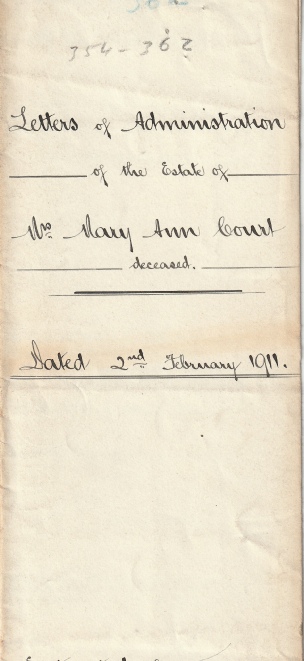 354-362
Letters of Administration
of the Estate of
Mrs Mary Ann Court
deceased.
Dated 2nd February 1911.